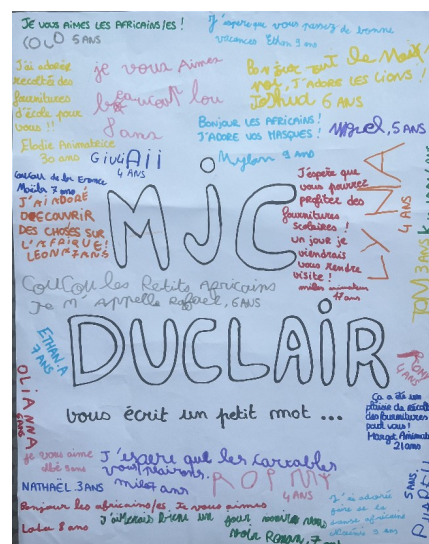 JE VOUS AIMES LES AFRICAINS/ES !
COLO 5 ANS
J'espère que vous passez de bonne
vacances Ethan 9 ans
J'ai adorée
recoltée des
fournitures
d'école pour
vous !!
Elodie Animatrice
30 ans
je vous Aimes
beaucoup lou
8 ans
Bonjour tout le
moi, J'ADORE LES LIONS !
6 ANS
BONJOUR LES AFRICAINS !
J'ADORE VOS MASQUES !
5 ANS
Mylan 9 ans
GiuliAii
4 ANS
Coucou de la France
7 ans
J'AI ADORÉ
DECOUVRIR
DES CHOSES SUR
L'AFRIQUE!
LEONA 7 ANS
MJC
J'éspère que
vous pourrez
profiter des
fournitures
scolaires !
un jour je
viendrais
vous rendre
visite !
animateur
17 ans
LYNA
4 ANS
TOM 3 ANS
COUCOU les Petits Africains
Je m'appelle Raffael, 6 ANS
ETHAN.A
7 ANS
DUCLAIR
OLIANNA
6 ANS
4 ANS
vous écrit un petit mot ...
Ça a été un
plaisir de récolter
des fournitures
pour vous !
Margot Animatrice
21 ans
je vous aime
8 ans
J'éspere que les cartables
vous plairons.
7 ans
NATHAËL 3 ANS
ROMY
4 ANS
J'ai adoré
5 ANS
Bonjour les africains/es. Je vous aimes
8 ans
J'aimerais bien un jour
Ronan, 7 ans